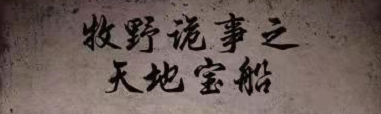 牧野诡事之
天地宝船